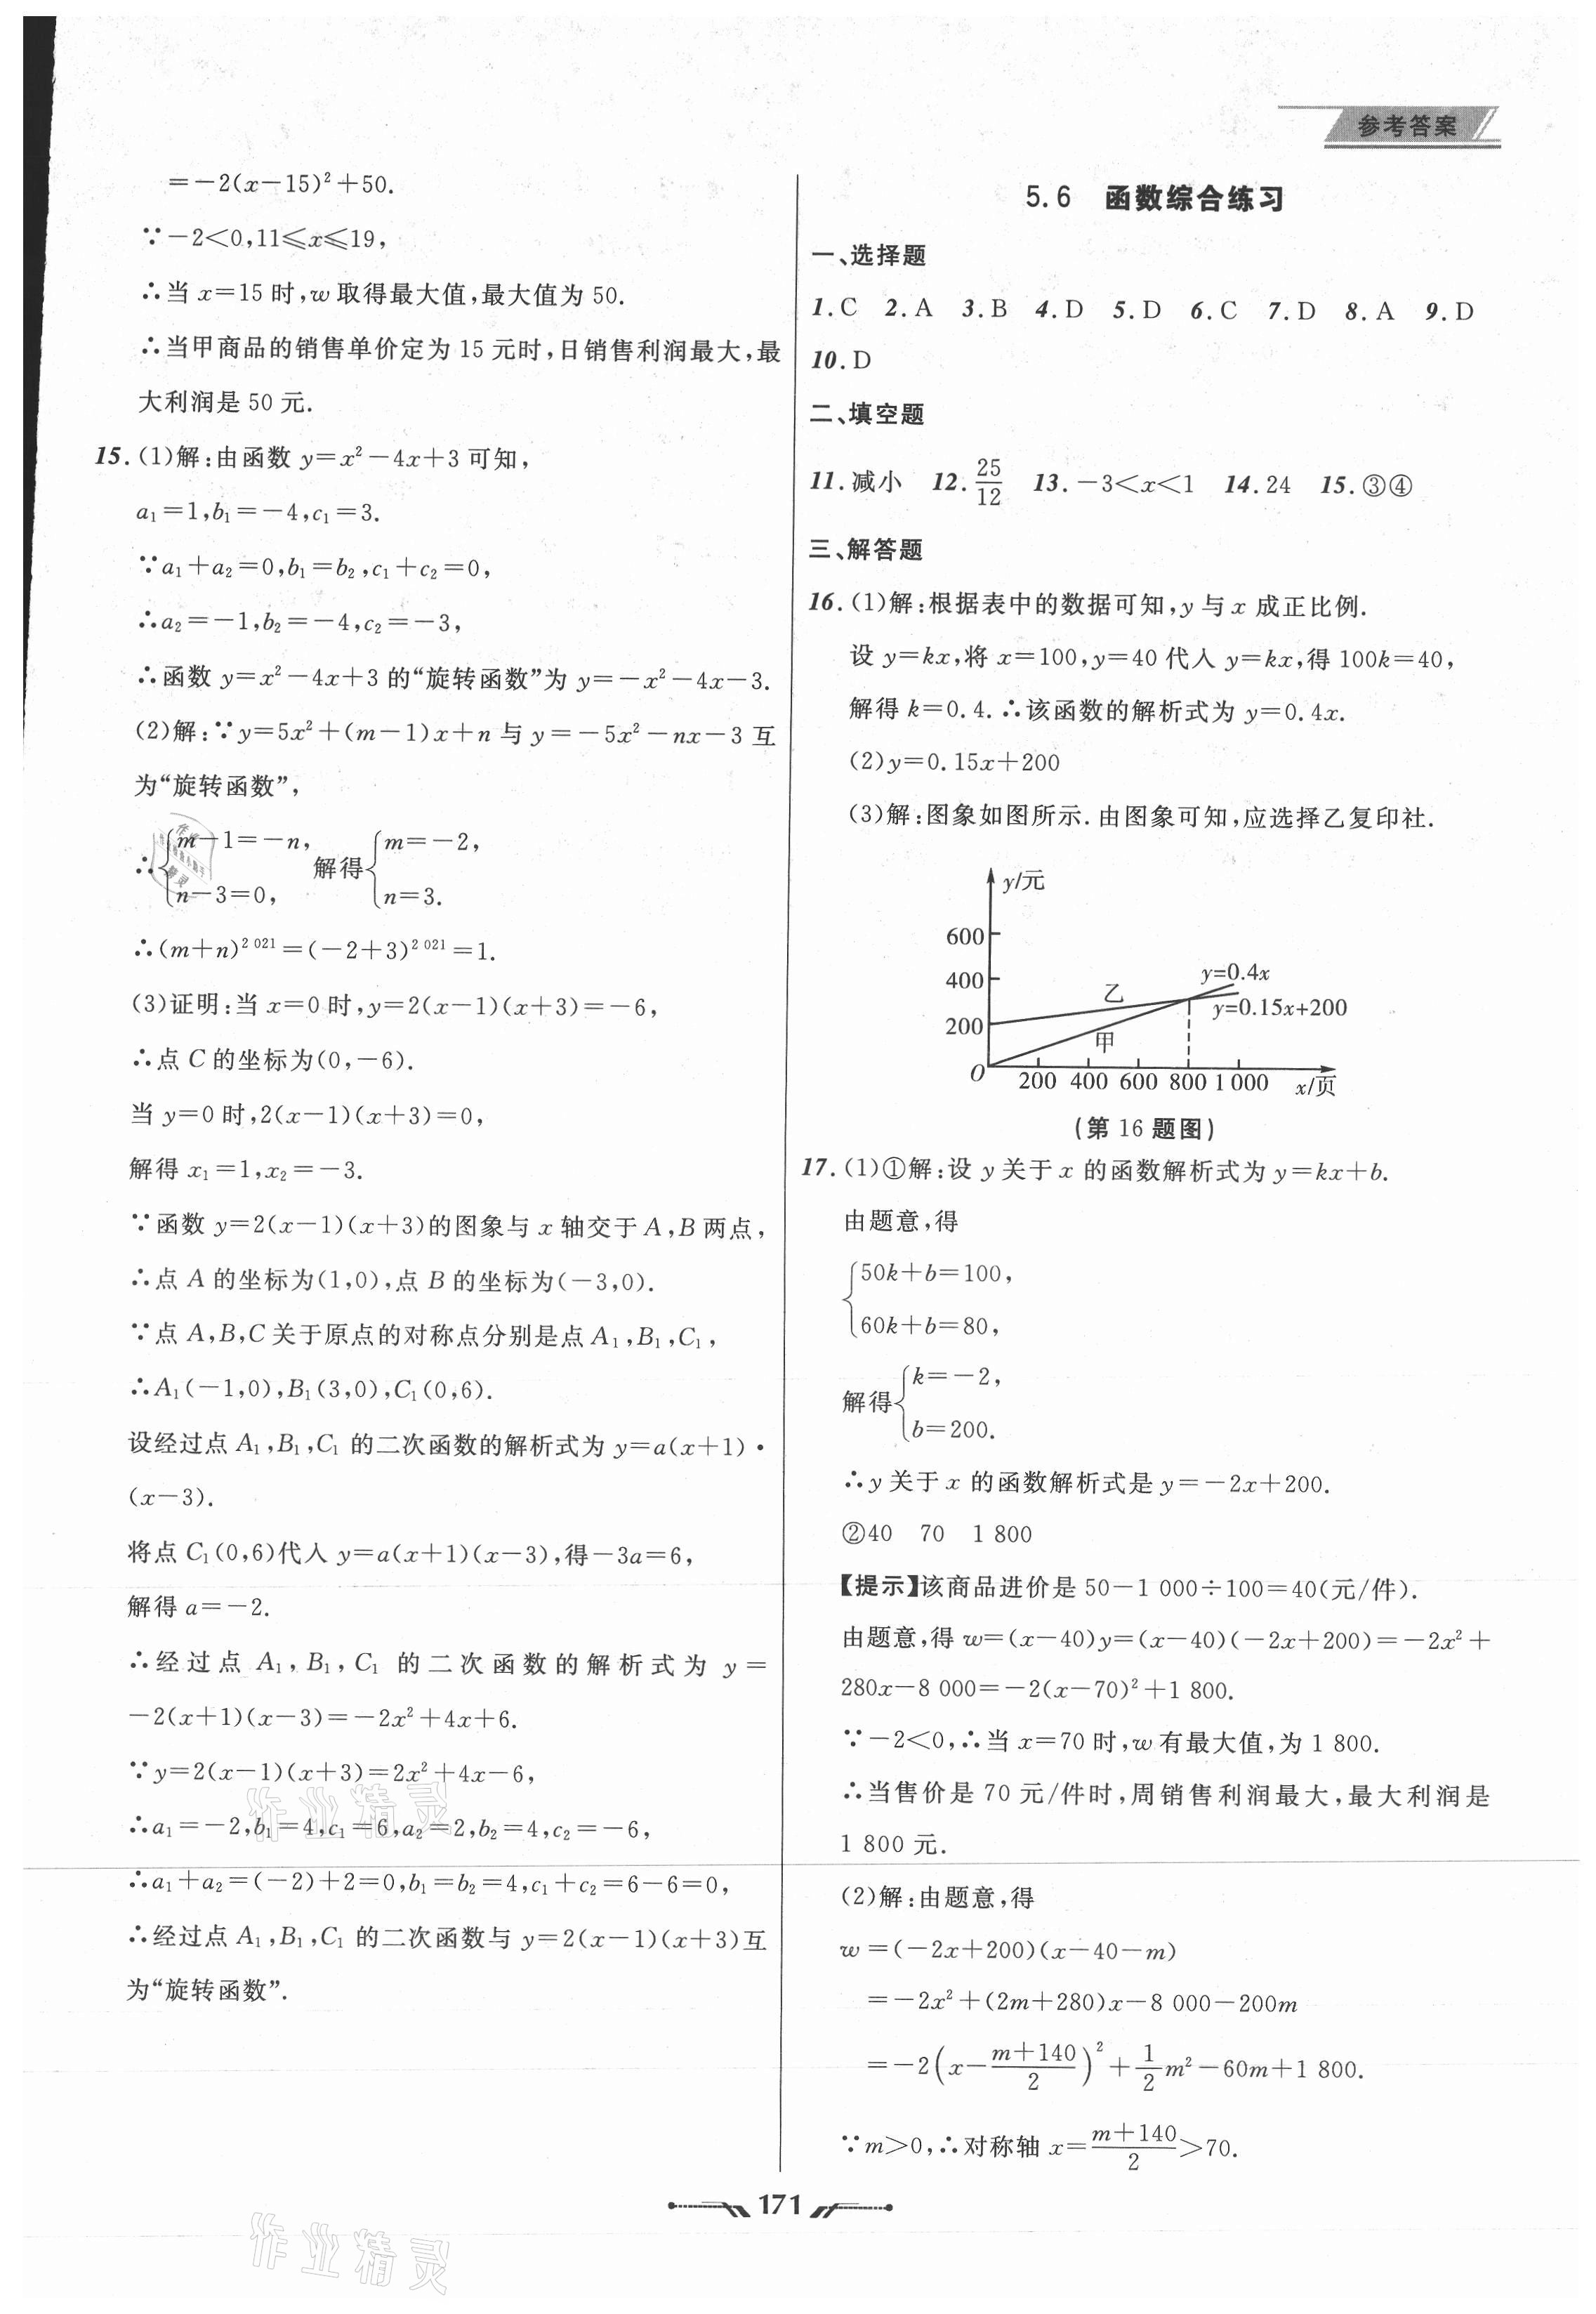 参考答案
=-2(x-15)²+50.
∵-2<0,11≤x≤19,
∴当 x=15 时,w 取得最大值,最大值为 50.
∴当甲商品的销售单价定为 15 元时,日销售利润最大,最
大利润是 50 元.
15.(1)解:由函数 y=x²-4x+3 可知,
a₁=1,b₁=-4,c₁=3.
∵a₁+a₂=0,b₁=b₂,c₁+c₂=0,
∴a₂=-1,b₂=-4,c₂=-3,
∴函数 y=x²-4x+3 的“旋转函数”为 y=-x²-4x-3.
(2)解:∵y=5x²+(m-1)x+n 与 y=-5x²-nx-3 互
为“旋转函数”,
∴{m-1=-n, 解得{m=-2,
n-3=0, n=3.
∴(m+n)²⁰²¹=(-2+3)²⁰²¹=1.
(3)证明:当 x=0 时,y=2(x-1)(x+3)=-6,
∴点 C 的坐标为(0,-6).
当 y=0 时,2(x-1)(x+3)=0,
解得 x₁=1,x₂=-3.
∵函数 y=2(x-1)(x+3)的图象与 x 轴交于 A,B 两点,
∴点 A 的坐标为(1,0),点 B 的坐标为(-3,0).
∵点 A,B,C 关于原点的对称点分别是点 A₁,B₁,C₁,
∴A₁(-1,0),B₁(3,0),C₁(0,6).
设经过点 A₁,B₁,C₁ 的二次函数的解析式为 y=a(x+1)·
(x-3).
将点 C₁(0,6)代入 y=a(x+1)(x-3),得-3a=6,
解得 a=-2.
∴经过点 A₁,B₁,C₁ 的二次函数的解析式为 y=
-2(x+1)(x-3)=-2x²+4x+6.
∵y=2(x-1)(x+3)=2x²+4x-6,
∴a₁=-2,b₁=4,c₁=6,a₂=2,b₂=4,c₂=-6,
∴a₁+a₂=(-2)+2=0,b₁=b₂=4,c₁+c₂=6-6=0,
∴经过点 A₁,B₁,C₁ 的二次函数与 y=2(x-1)(x+3)互
为“旋转函数”.
5.6 函数综合练习
一、选择题
1.C 2.A 3.B 4.D 5.D 6.C 7.D 8.A 9.D
10.D
二、填空题
11.减小 12.25/12 13.-3<x<1 14.24 15.③④
三、解答题
16.(1)解:根据表中的数据可知,y 与 x 成正比例.
设 y=kx,将 x=100,y=40 代入 y=kx,得 100k=40,
解得 k=0.4.∴该函数的解析式为 y=0.4x.
(2)y=0.15x+200
(3)解:图象如图所示.由图象可知,应选择乙复印社.
y/元
600
400
200
y=0.4x
乙
y=0.15x+200
甲
O 200 400 600 800 1 000 x/页
(第 16 题图)
17.(1)①解:设 y 关于 x 的函数解析式为 y=kx+b.
由题意,得
{50k+b=100,
60k+b=80,
解得{k=-2,
b=200.
∴y 关于 x 的函数解析式是 y=-2x+200.
②40 70 1 800
【提示】该商品进价是 50-1 000÷100=40(元/件).
由题意,得 w=(x-40)y=(x-40)(-2x+200)=-2x²+
280x-8 000=-2(x-70)²+1 800.
∵-2<0,∴当 x=70 时,w 有最大值,为 1 800.
∴当售价是 70 元/件时,周销售利润最大,最大利润是
1 800 元.
(2)解:由题意,得
w=(-2x+200)(x-40-m)
=-2x²+(2m+280)x-8 000-200m
=-2(x-(m+140)/2)²+1/2m²-60m+1 800.
∵m>0,∴对称轴 x=(m+140)/2>70.
171
作业精灵
作业精灵